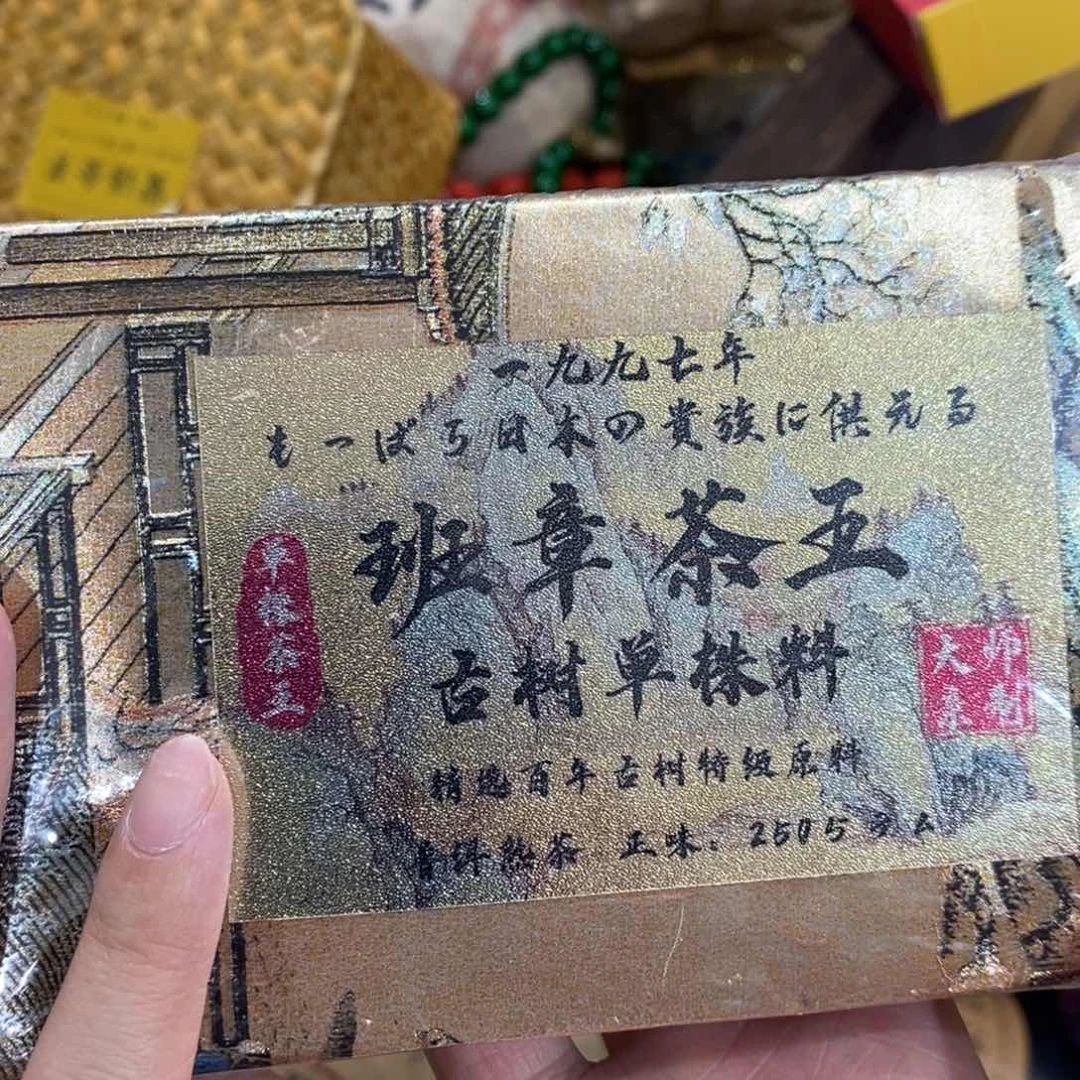 一九九七年
もっぱら日本の貴族に供元る
班章茶王
古树单株料
单株茶王
大师
精选百年古树特级原料
青饼熟茶 正味:2505グラム